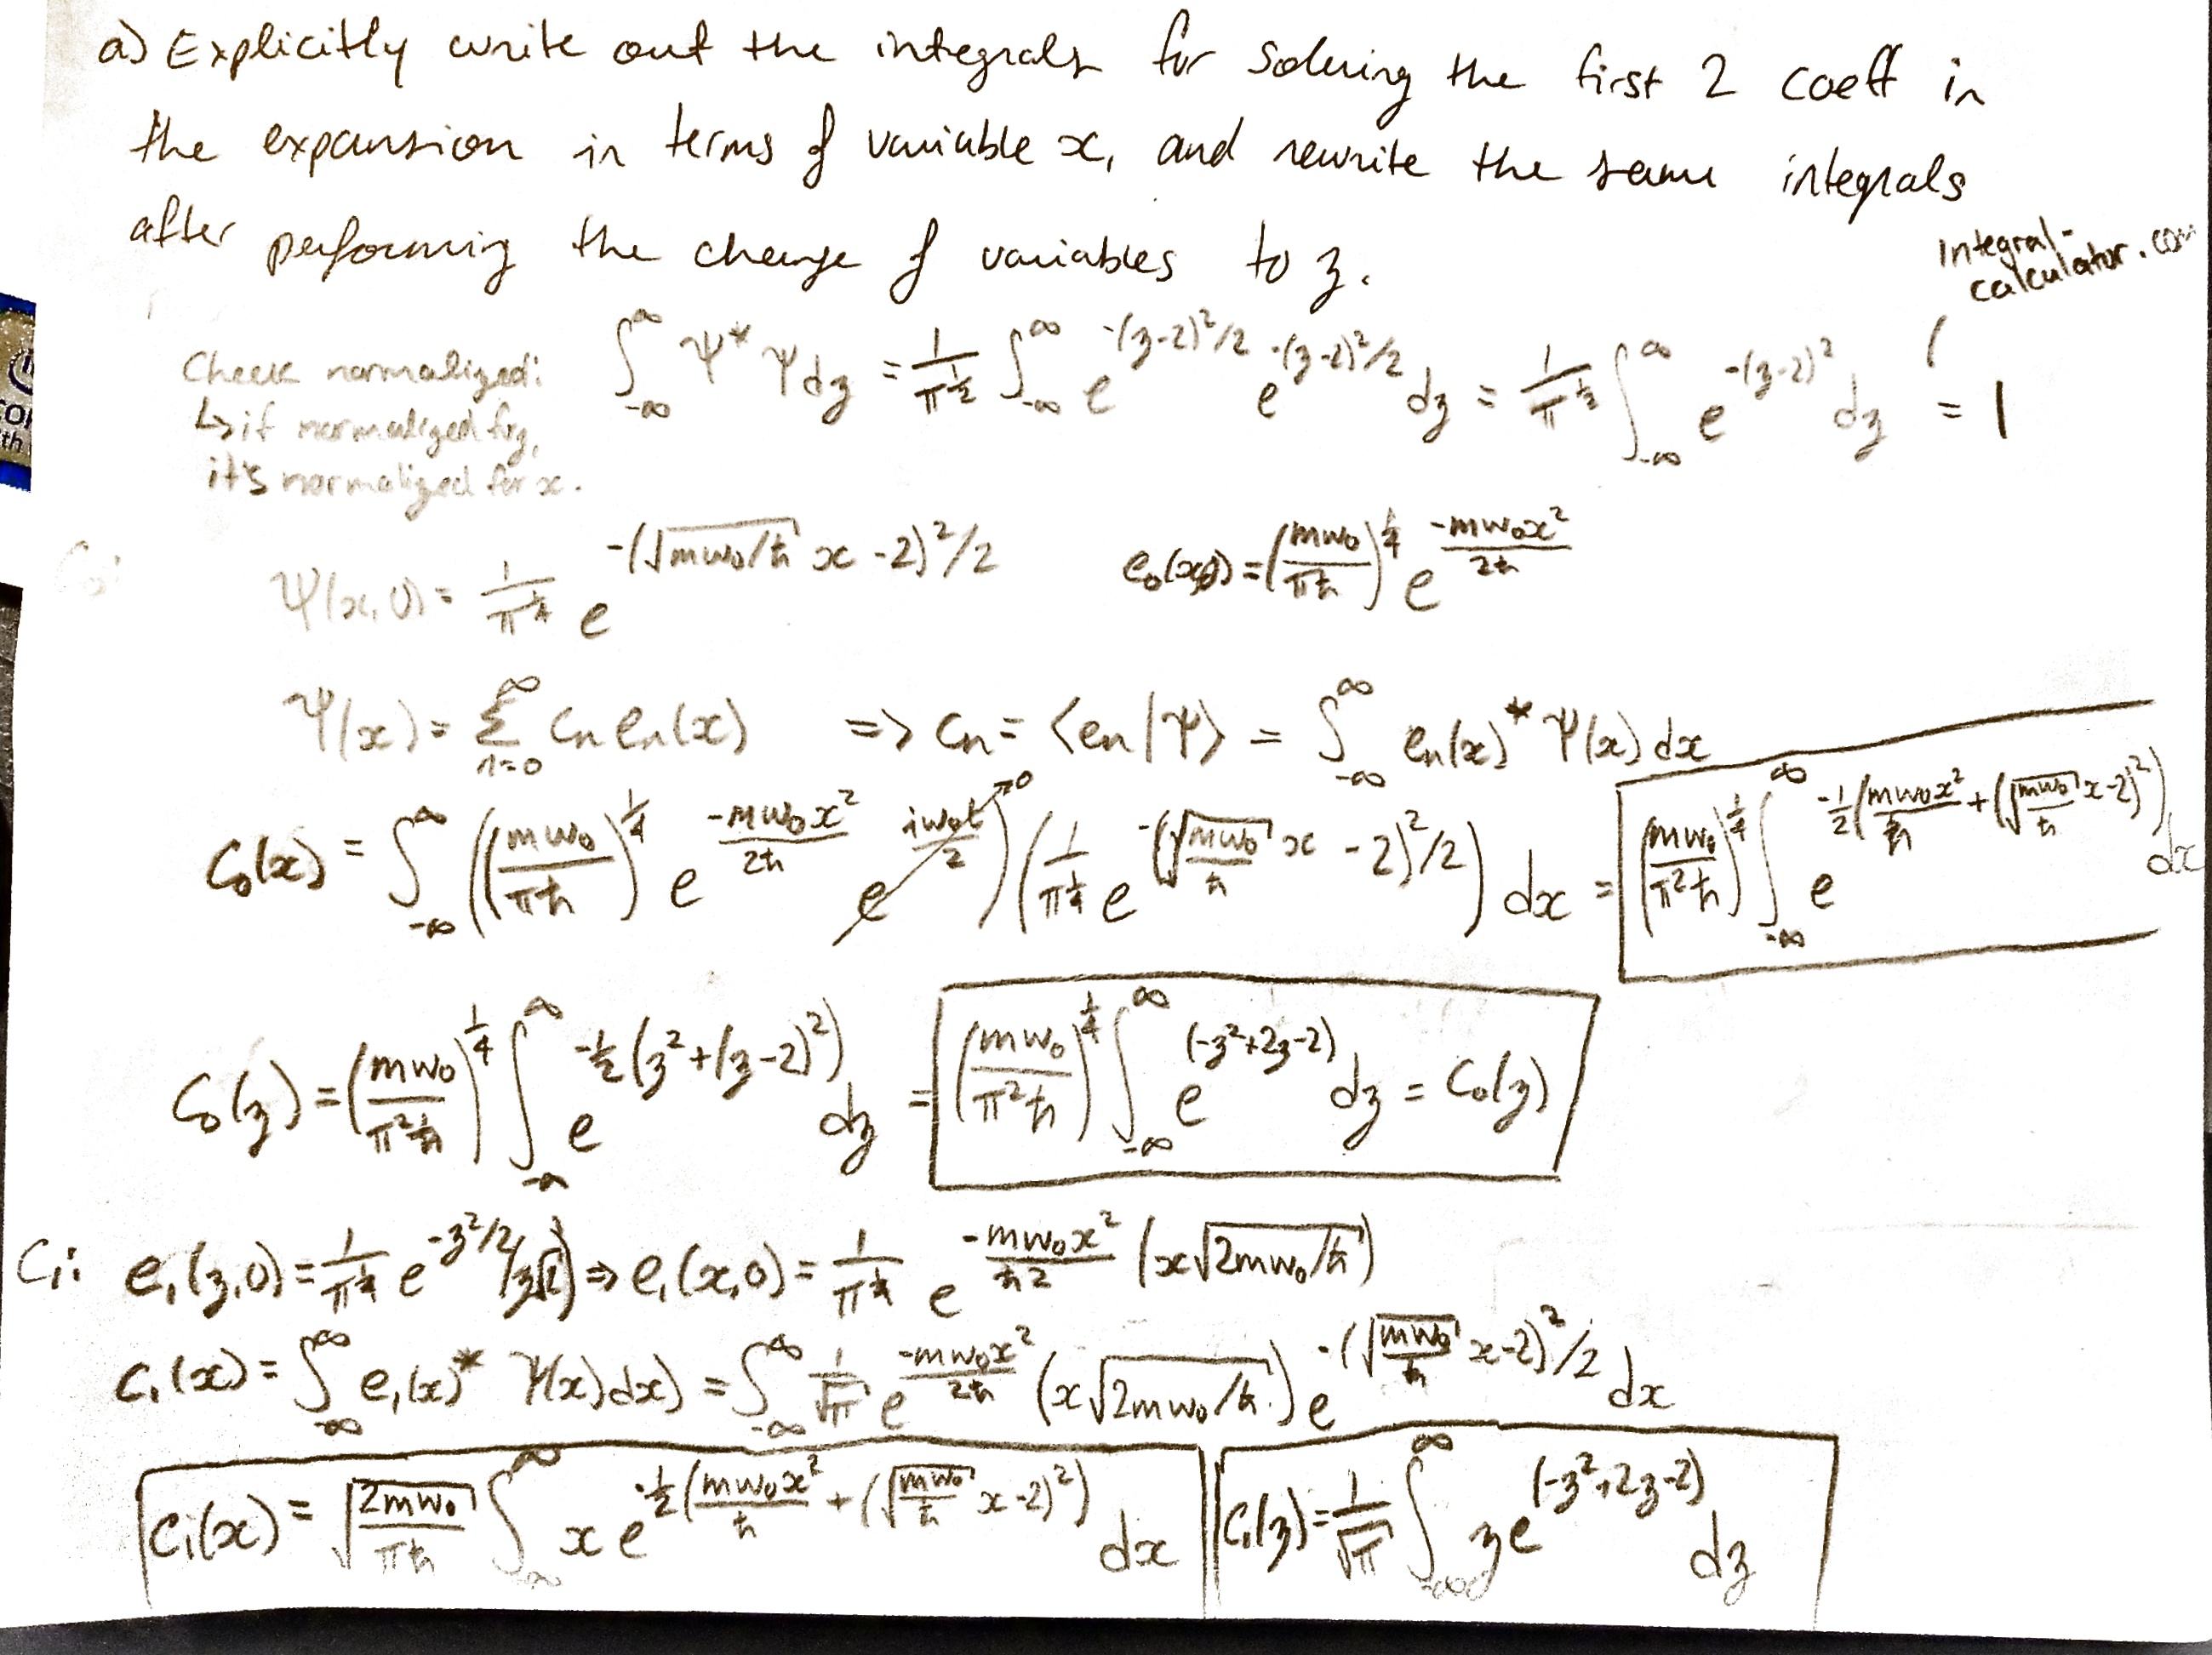 a) Explicitly write out the integrals for solving the first 2 coeff in
the expansion in terms of variable x, and rewrite the same integrals
after performing the change of variables to z.
Integral-
calculator.com
Check normalized:
↳ if normalized for z,
it's normalized for x.
∫_{-∞}^{∞} Ψ* Ψ dz = 1/π^{1/2} ∫_{-∞}^{∞} e^{-(z-2)²/2} e^{-(z-2)²/2} dz = 1/π^{1/2} ∫_{-∞}^{∞} e^{-(z-2)²} dz = 1
C₀:
Ψ(x,0) = 1/π^{1/4} e^{-(√(mw₀/ħ) x - 2)²/2}   e₀(x,0) = (mw₀/πħ)^{1/4} e^{-mw₀x²/2ħ}
Ψ(x) = Σ_{n=0}^{∞} Cₙ eₙ(x) => Cₙ = <eₙ|Ψ> = ∫_{-∞}^{∞} eₙ(x)* Ψ(x) dx
C₀(x) = ∫_{-∞}^{∞} ((mw₀/πħ)^{1/4} e^{-mw₀x²/2ħ} e^{iw₀t/2} →0) (1/π^{1/4} e^{-(√(mw₀/ħ) x - 2)²/2}) dx = (mw₀/π²ħ)^{1/4} ∫_{-∞}^{∞} e^{-1/2(mw₀x²/ħ + (√(mw₀/ħ) x-2)²)} dx
C₀(z) = (mw₀/π²ħ)^{1/4} ∫_{-∞}^{∞} e^{-1/2(z²+(z-2)²)} dz = (mw₀/π²ħ)^{1/4} ∫_{-∞}^{∞} e^{(-z²+2z-2)} dz = C₀(z)
C₁: e₁(z,0) = 1/π^{1/4} e^{-z²/2} (z√2) => e₁(x,0) = 1/π^{1/4} e^{-mw₀x²/ħ2} (x√(2mw₀/ħ))
C₁(x) = ∫_{-∞}^{∞} e₁(x)* Ψ(x) dx) = ∫_{-∞}^{∞} 1/√π e^{-mw₀x²/2ħ} (x√(2mw₀/ħ)) e^{-(√(mw₀/ħ) x-2)²/2} dx
C₁(x) = √(2mw₀/πħ) ∫_{-∞}^{∞} x e^{-1/2(mw₀x²/ħ + (√(mw₀/ħ) x-2)²)} dx   C₁(z) = 1/√π ∫_{-∞}^{∞} z e^{(-z²+2z-2)} dz